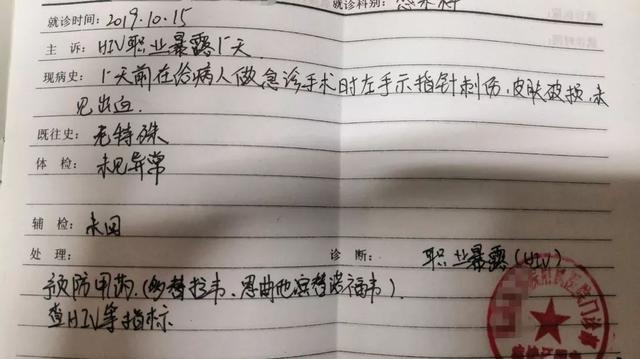 就诊时间: 2019.10.15 就诊科别:
主 诉: HIV职业暴露1天
现病史: 1天前在给病人做急诊手术时左手示指针刺伤，皮肤破损，未
见出血.
既往史: 无特殊
体 检: 未见异常
辅 检: 未回
处 理: 诊 断: 职业暴露(HIV)
预防用药.(多替拉韦、恩曲他滨替诺福韦)
查HIV等指标